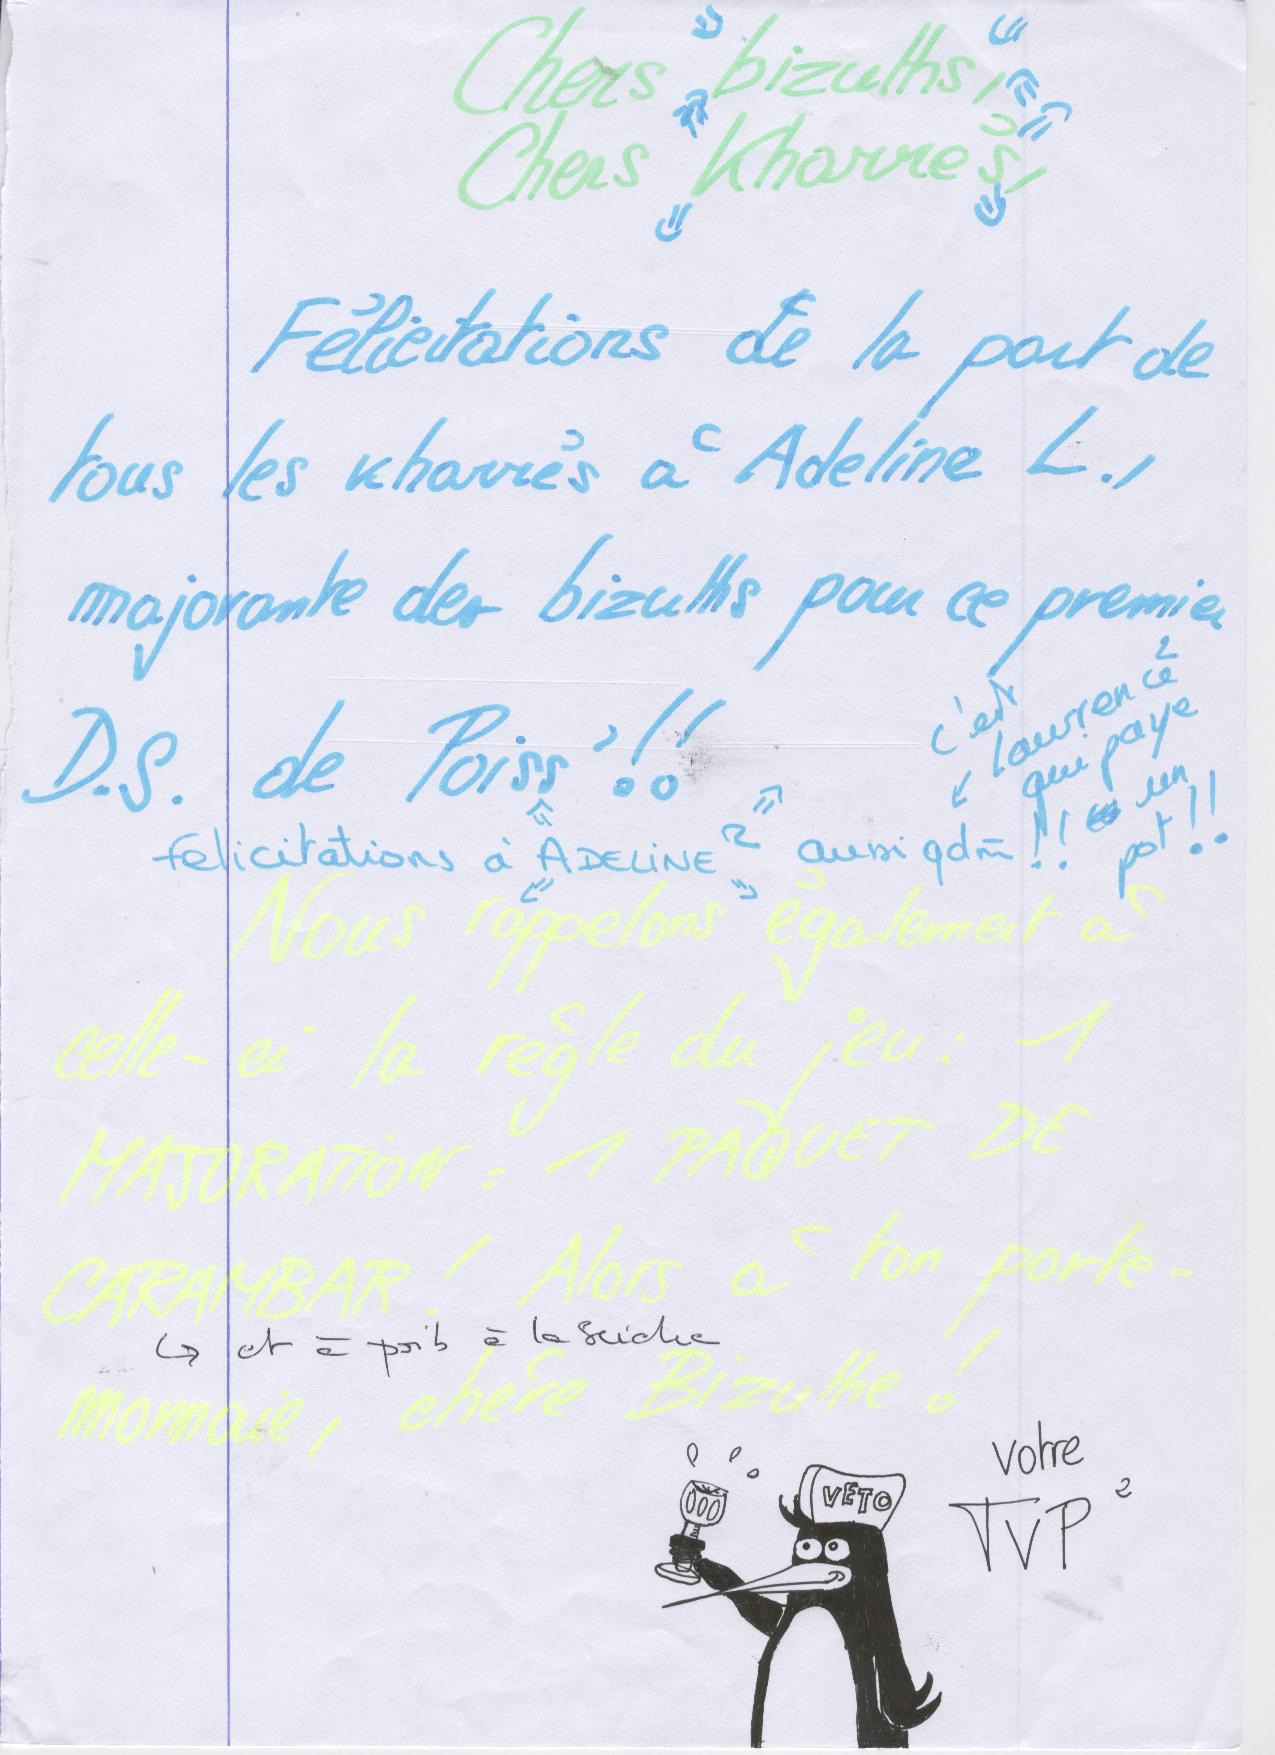 Chers bizuths,
Chers Kharrés,
Félicitations de la part de
tous les kharrés à Adeline L.,
majorante des bizuths pour ce premier
D.S. de Poiss !!
c'est
laurence²
qui paye
un
pot !!
felicitations à ADELINE² aussi qdm !!
Nous rappelons également à
celle-ci la règle du jeu : 1
MAJORATION = 1 PAQUET DE
CARAMBAR ! Alors à ton porte-
↳ et à poil à la Seiche
monnaie, chère Bizuthe !
votre
TVP²
VÉTO